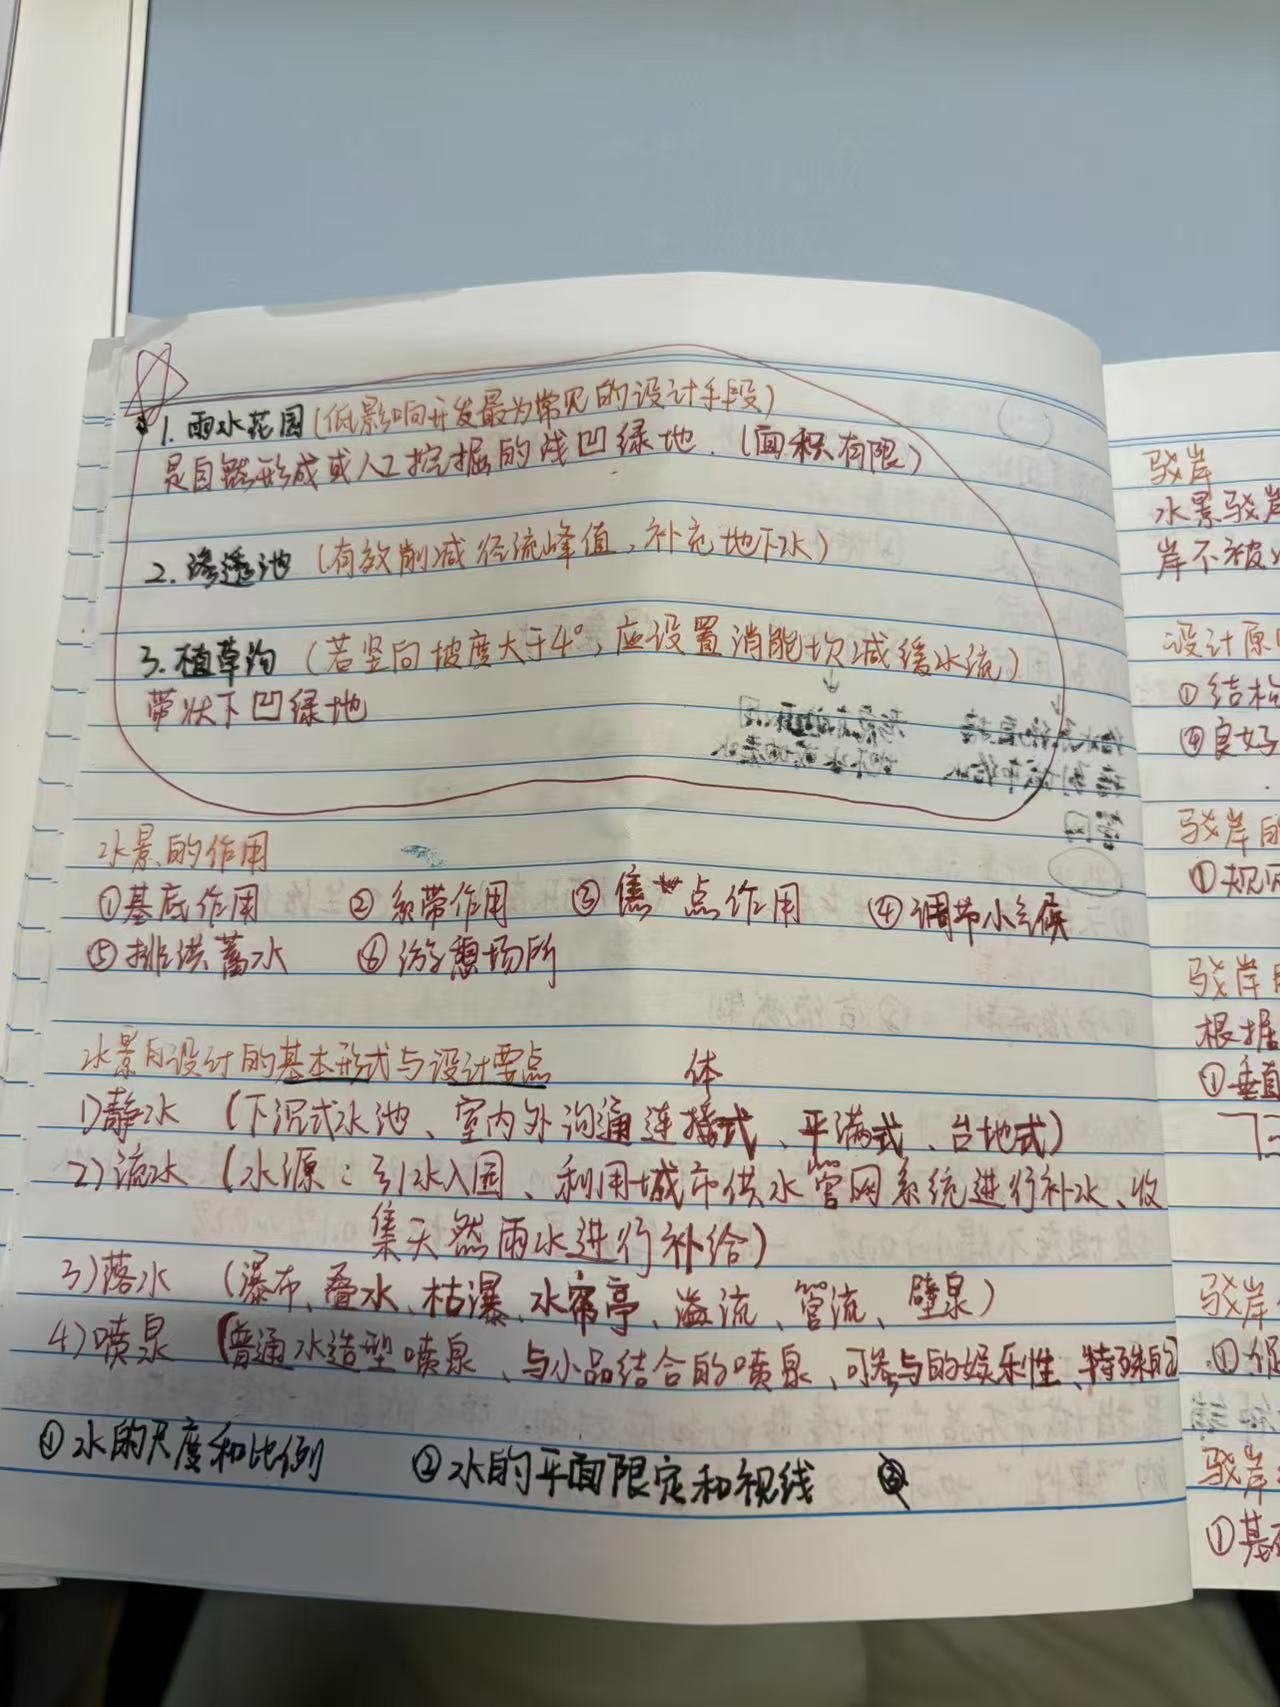 1. 雨水花园(低影响开发最为常见的设计手段)
是自然形成或人工挖掘的浅凹绿地.(面积有限)
2. 渗透池 (有效削减径流峰值,补充地下水)
3. 植草沟 (若竖向坡度大于4°,应设置消能坎减缓水流)
带状下凹绿地
水景的作用
①基底作用 ②系带作用 ③焦点作用 ④调节小气候
⑤排洪蓄水 ⑥游憩场所
水景设计的基本形式与设计要点
体
1)静水 (下沉式水池、室内外沟通连接式、平满式、台地式)
2)流水 (水源:引水入园、利用城市供水管网系统进行补水、收
集天然雨水进行补给)
3)落水 (瀑布、叠水、枯瀑、水帘亭、溢流、管流、壁泉)
4)喷泉 (普通水造型喷泉、与小品结合的喷泉、可参与的娱乐性、特殊的)
①水的尺度和比例 ②水的平面限定和视线
驳岸
水景驳岸
岸不被
设计原
①结构
④良好
驳岸的
①规则
驳岸
根据
①垂直
驳岸
①
驳岸
①基